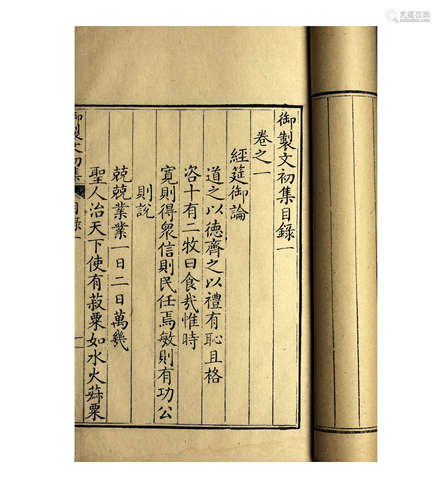 御製文初集目錄一
卷之一
經筵御論
道之以德齊之以禮有恥且格
咨十有二牧曰食哉惟時
寬則得衆信則民任焉敏則有功公
則說
兢兢業業一日二日萬幾
聖人治天下使有菽粟如水火菽粟
御製文初集 目錄一 一